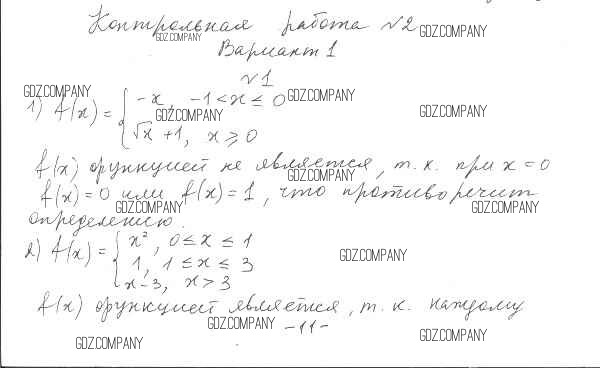 Контрольная работа №2
Вариант 1
№1
1) f(x) = { -x, -1 < x ≤ 0
√x + 1, x ≥ 0
f(x) функцией не является, т.к. при x = 0
f(x) = 0 или f(x) = 1, что противоречит
определению.
2) f(x) = { x², 0 ≤ x ≤ 1
1, 1 ≤ x ≤ 3
x - 3, x > 3
f(x) функцией является, т.к. каждому
-11-
GDZ.COMPANY
GDZ.COMPANY
GDZ.COMPANY
GDZ.COMPANY
GDZ.COMPANY
GDZ.COMPANY
GDZ.COMPANY
GDZ.COMPANY
GDZ.COMPANY
GDZ.COMPANY
GDZ.COMPANY
GDZ.COMPANY
GDZ.COMPANY